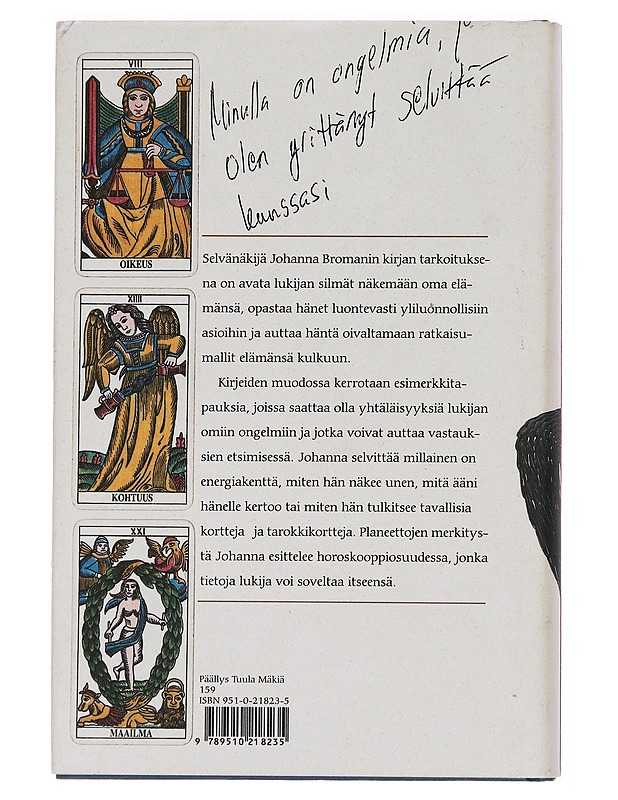 VIII
OIKEUS
XIIII
KOHTUUS
XXI
MAAILMA
Minulla on ongelmia,
Olen yrittänyt selvittää
kanssasi
Selvänäkijä Johanna Bromanin kirjan tarkoitukse-
na on avata lukijan silmät näkemään oma elä-
mänsä, opastaa hänet luontevasti yliluonnollisiin
asioihin ja auttaa häntä oivaltamaan ratkaisu-
mallit elämänsä kulkuun.
Kirjeiden muodossa kerrotaan esimerkkita-
pauksia, joissa saattaa olla yhtäläisyyksiä lukijan
omiin ongelmiin ja jotka voivat auttaa vastauk-
sien etsimisessä. Johanna selvittää millainen on
energiakenttä, miten hän näkee unen, mitä ääni
hänelle kertoo tai miten hän tulkitsee tavallisia
kortteja ja tarokkikortteja. Planeettojen merkitys-
tä Johanna esittelee horoskooppiosuudessa, jonka
tietoja lukija voi soveltaa itseensä.
Päällys Tuula Mäkiä
159
ISBN 951-0-21823-5
9 789510 218235